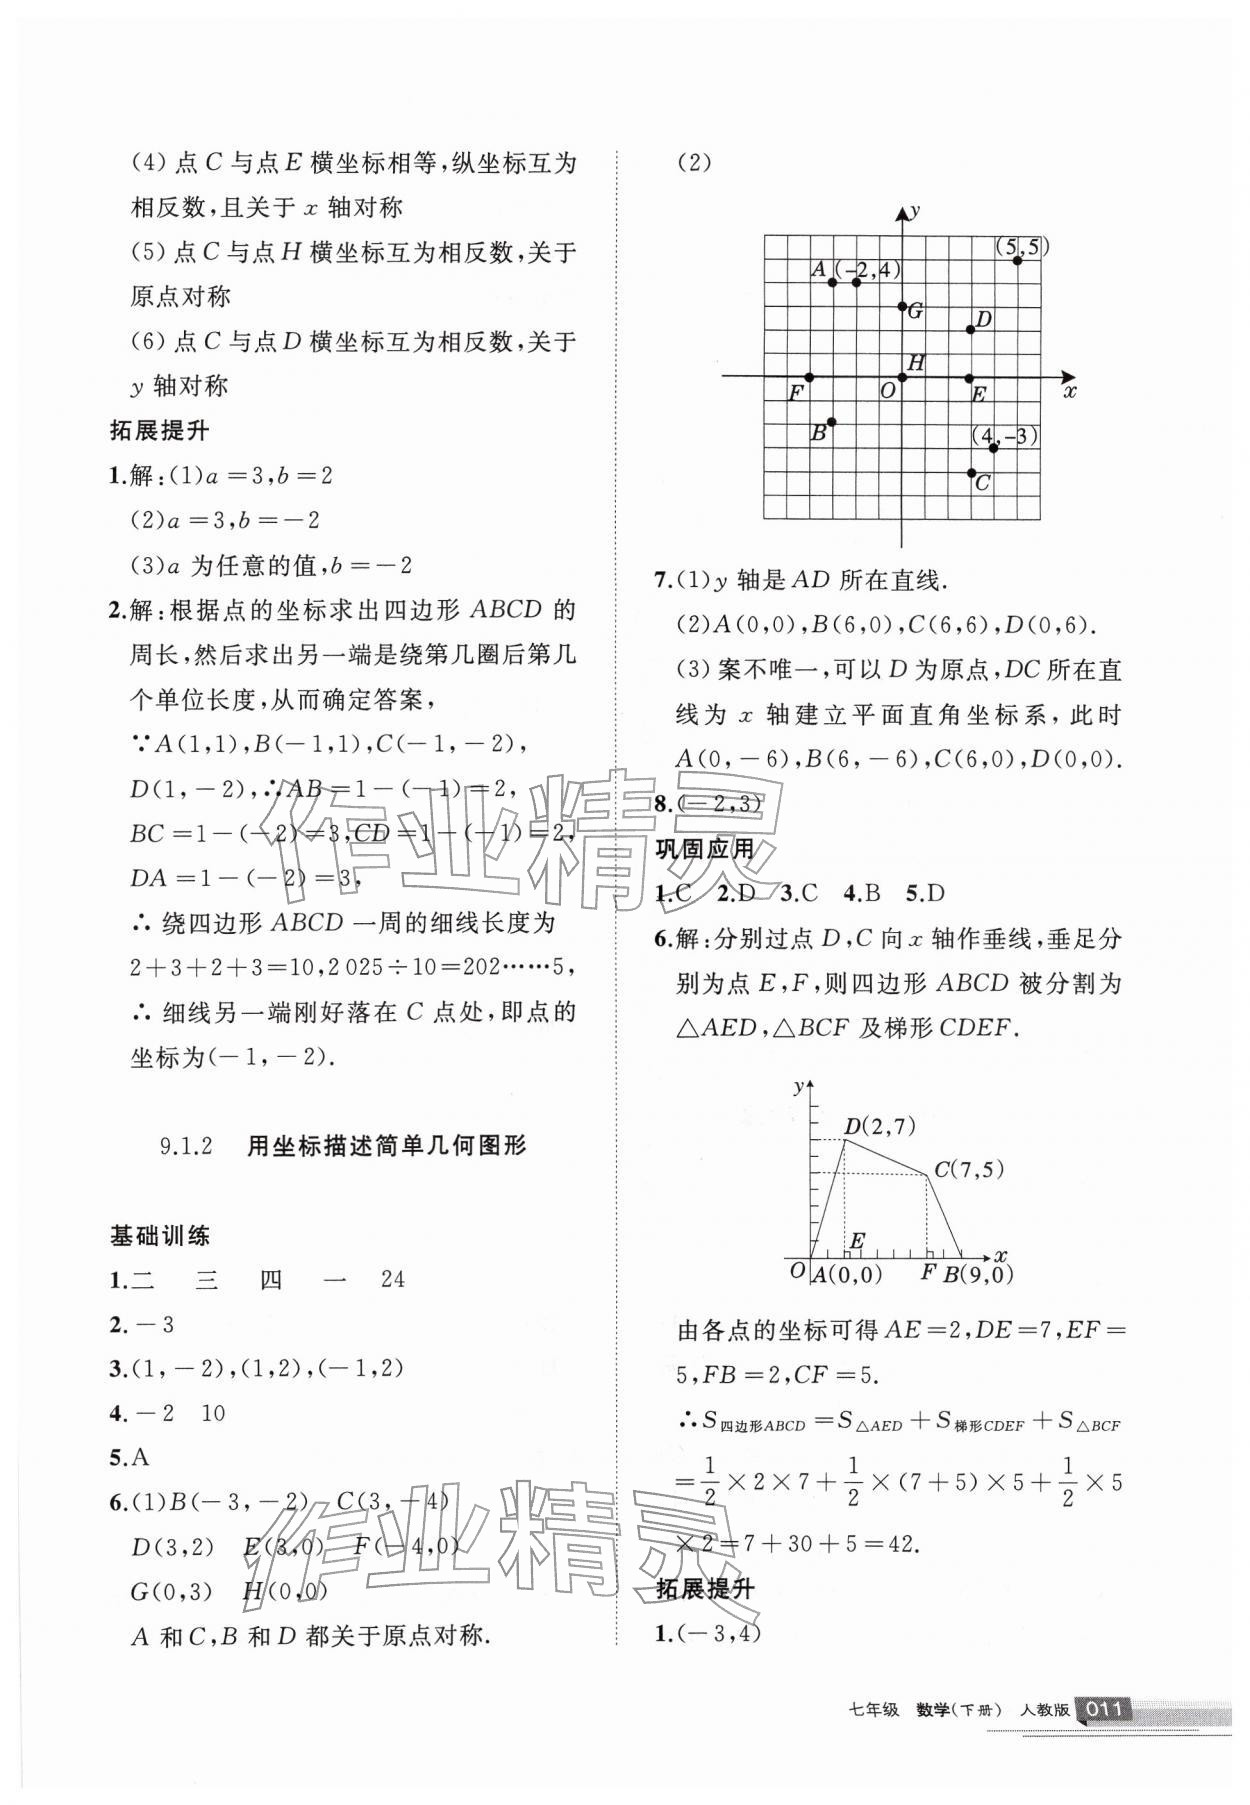 (4)点C与点E横坐标相等,纵坐标互为
相反数,且关于x轴对称
(5)点C与点H横坐标互为相反数,关于
原点对称
(6)点C与点D横坐标互为相反数,关于
y轴对称
拓展提升
1.解:(1)a=3,b=2
(2)a=3,b=-2
(3)a为任意的值,b=-2
2.解:根据点的坐标求出四边形ABCD的
周长,然后求出另一端是绕第几圈后第几
个单位长度,从而确定答案,
∵A(1,1),B(-1,1),C(-1,-2),
D(1,-2),∴AB=1-(-1)=2,
BC=1-(-2)=3,CD=1-(-1)=2,
DA=1-(-2)=3,
∴绕四边形ABCD一周的细线长度为
2+3+2+3=10,2025÷10=202……5,
∴细线另一端刚好落在C点处,即点的
坐标为(-1,-2).
9.1.2 用坐标描述简单几何图形
基础训练
1.二 三 四 一 24
2.-3
3.(1,-2),(1,2),(-1,2)
4.-2 10
5.A
6.(1)B(-3,-2) C(3,-4)
D(3,2) E(3,0) F(-4,0)
G(0,3) H(0,0)
A和C,B和D都关于原点对称.
(2)
y
(5,5)
A (-2,4)
G
D
H
F O E x
B
(4,-3)
C
7.(1)y轴是AD所在直线.
(2)A(0,0),B(6,0),C(6,6),D(0,6).
(3)案不唯一,可以D为原点,DC所在直
线为x轴建立平面直角坐标系,此时
A(0,-6),B(6,-6),C(6,0),D(0,0).
8.(-2,3)
巩固应用
1.C 2.D 3.C 4.B 5.D
6.解:分别过点D,C向x轴作垂线,垂足分
别为点E,F,则四边形ABCD被分割为
△AED,△BCF及梯形CDEF.
y
D(2,7)
C(7,5)
E
x
O A(0,0) F B(9,0)
由各点的坐标可得AE=2,DE=7,EF=
5,FB=2,CF=5.
∴S四边形ABCD=S△AED+S梯形CDEF+S△BCF
=1/2×2×7+1/2×(7+5)×5+1/2×5
×2=7+30+5=42.
拓展提升
1.(-3,4)
七年级 数学(下册) 人教版 011
作业精灵
作业精灵